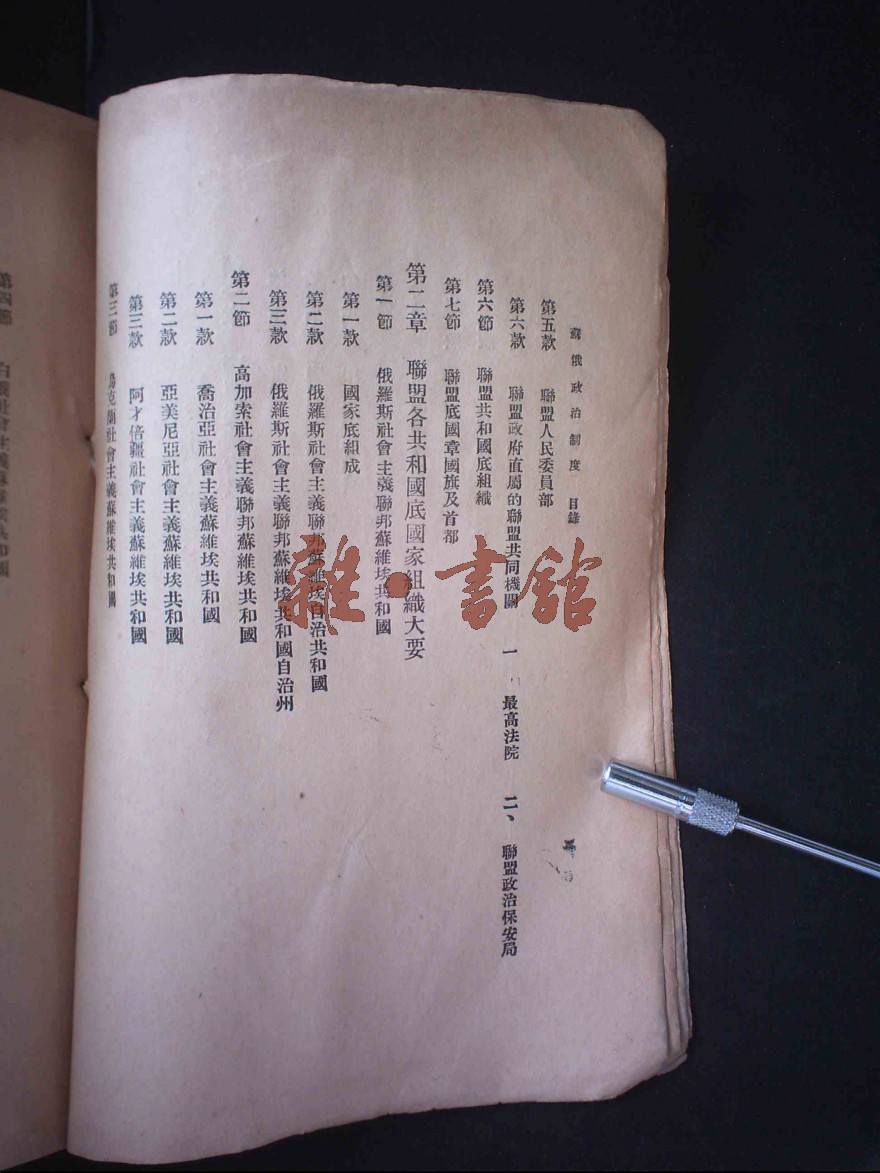 蘇俄政治制度 目錄
第五款 聯盟人民委員部
第六款 聯盟政府直屬的聯盟共同機關 一、最高法院 二、聯盟政治保安局
第六節 聯盟共和國底組織
第七節 聯盟底國章國旗及首都
第二章 聯盟各共和國底國家組織大要
第一節 俄羅斯社會主義聯邦蘇維埃共和國
第一款 國家底組成
第二款 俄羅斯社會主義聯邦蘇維埃自治共和國
第三款 俄羅斯社會主義聯邦蘇維埃共和國自治州
第二節 高加索社會主義聯邦蘇維埃共和國
第一款 喬治亞社會主義蘇維埃共和國
第二款 亞美尼亞社會主義蘇維埃共和國
第三款 阿才倍疆社會主義蘇維埃共和國
第三節 烏克蘭社會主義蘇維埃共和國
第四節 白俄社會主義蘇維埃共和國
雜·書館